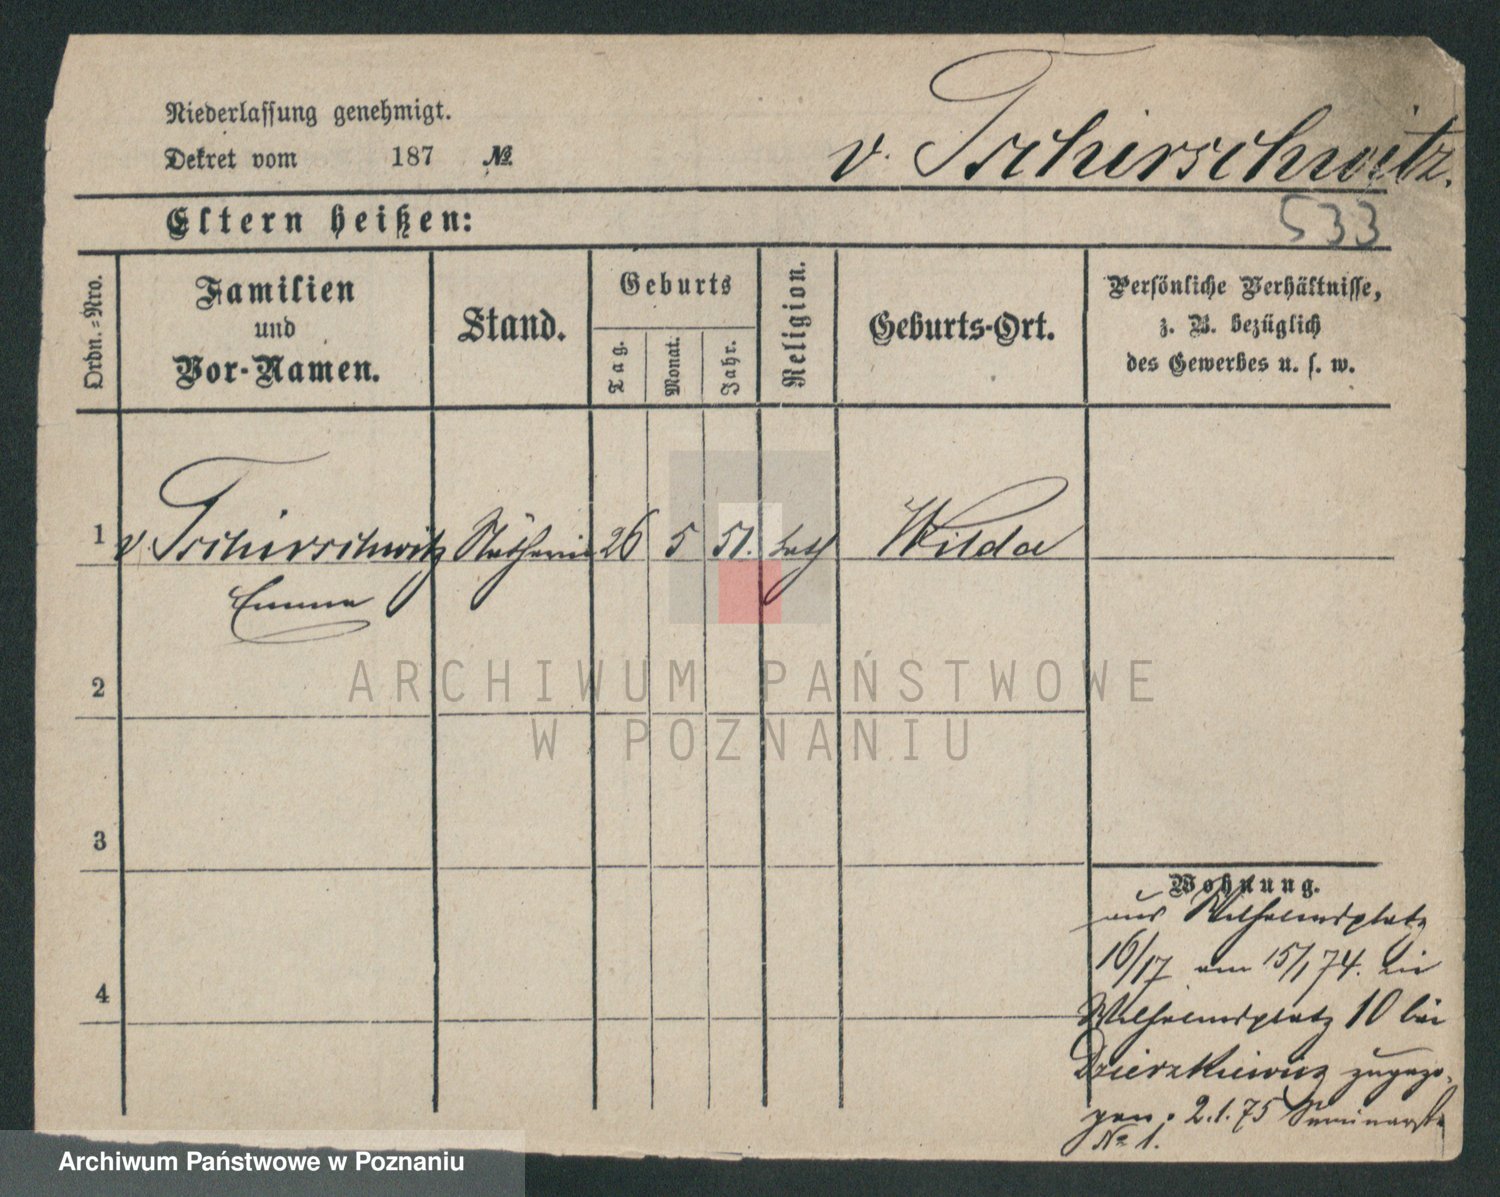 Niederlassung genehmigt.
Dekret vom 187 №
v. Tschirschwitz.
533
Eltern heißen:
Ordn.=Nro.
Familien
und
Vor-Namen.
Stand.
Geburts
Tag.
Monat.
Jahr.
Religion.
Geburts-Ort.
Persönliche Verhältnisse,
z. B. bezüglich
des Gewerbes u. s. w.
1 v. Tschirschwitz 26 5 51. kath Wilda
Emma
2
3
4
Wohnung.
aus Wilhelmsplatz
16/17 am 15/1 74. in
Wilhelmsplatz 10 bei
Dzierzkiewicz zugezo-
gen. 2.1.75 Seminarstr
No 1.
ARCHIWUM PAŃSTWOWE
W POZNANIU
Archiwum Państwowe w Poznaniu